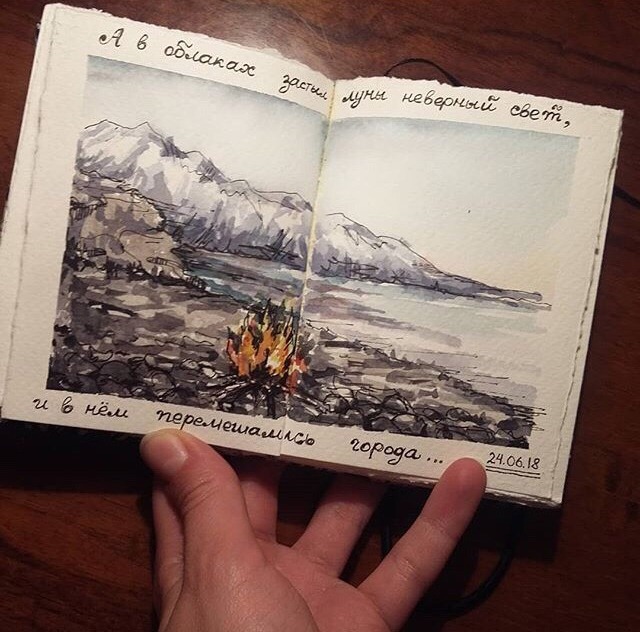 А в облаках застыл луны неверный свет,
и в нём перемешались города...
24.06.18